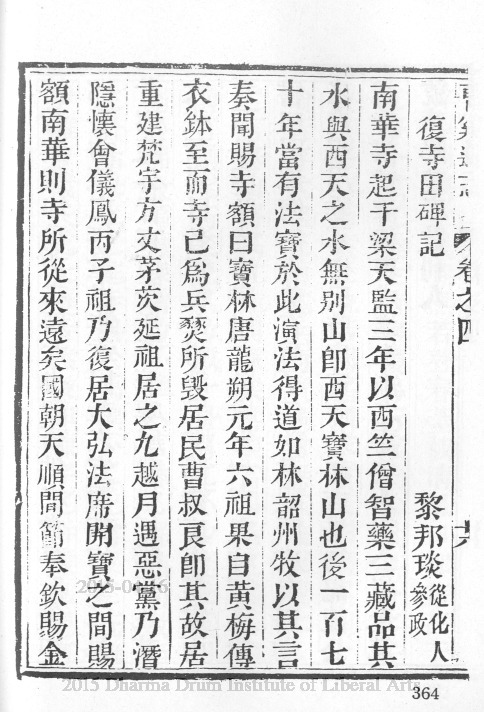 卷之四
復寺田碑記
黎邦琰從化人參政
南華寺起于梁天監三年以西竺僧智藥三藏品其
水與西天之水無別山卽西天寶林山也後一百七
十年當有法寶於此演法得道如林韶州牧以其言
奏聞賜寺額曰寶林唐龍朔元年六祖果自黃梅傳
衣鉢至而寺已爲兵燹所毀居民曹叔良卽其故居
重建梵宇方丈茅茨延祖居之九越月遇惡黨乃潛
隱懷會儀鳳丙子祖乃復居大弘法席開寶之間賜
額南華則寺所從來遠矣國朝天順間節奉欽賜金
2015 Dharma Drum Institute of Liberal Arts
364